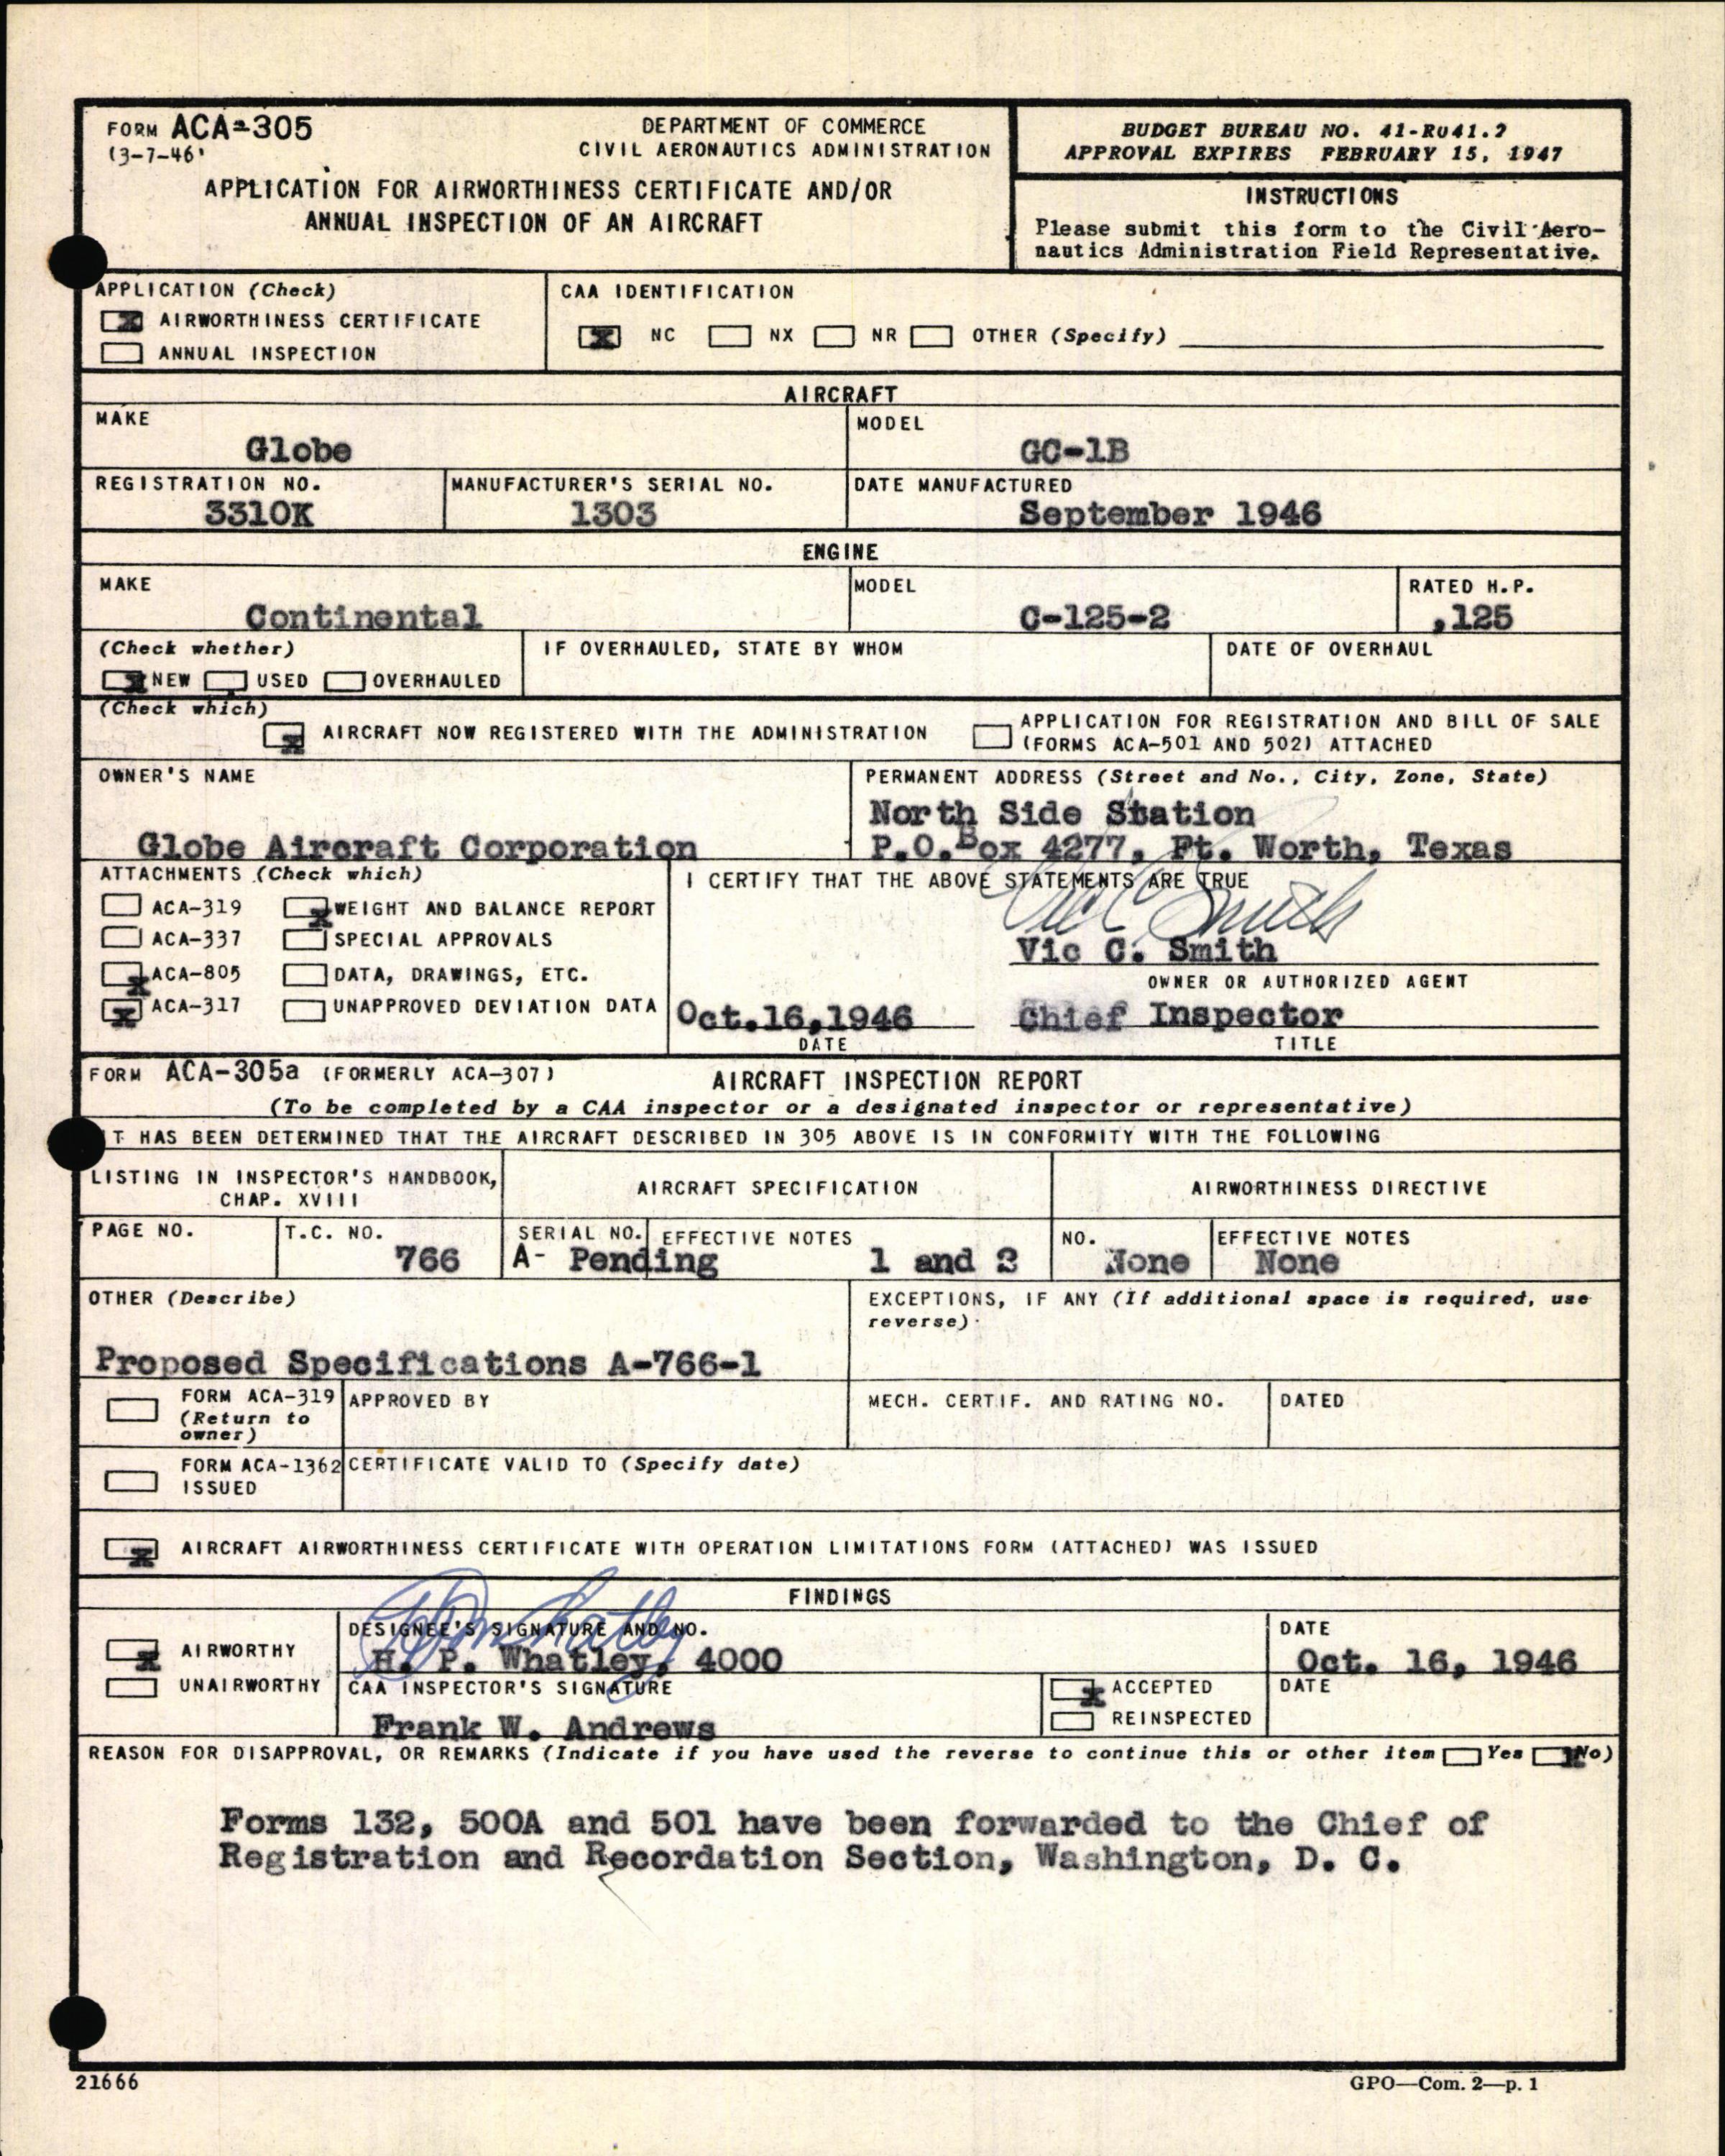 FORM ACA-305
(3-7-46)
DEPARTMENT OF COMMERCE
CIVIL AERONAUTICS ADMINISTRATION
APPLICATION FOR AIRWORTHINESS CERTIFICATE AND/OR
ANNUAL INSPECTION OF AN AIRCRAFT
BUDGET BUREAU NO. 41-R041.2
APPROVAL EXPIRES FEBRUARY 15, 1947
INSTRUCTIONS
Please submit this form to the Civil Aero-
nautics Administration Field Representative.
APPLICATION (Check)
X AIRWORTHINESS CERTIFICATE
ANNUAL INSPECTION
CAA IDENTIFICATION
X NC NX NR OTHER (Specify)
AIRCRAFT
MAKE
Globe
MODEL
GC-1B
REGISTRATION NO.
3310K
MANUFACTURER'S SERIAL NO.
1303
DATE MANUFACTURED
September 1946
ENGINE
MAKE
Continental
MODEL
C-125-2
RATED H.P.
,125
(Check whether)
X NEW USED OVERHAULED
IF OVERHAULED, STATE BY WHOM
DATE OF OVERHAUL
(Check which)
X AIRCRAFT NOW REGISTERED WITH THE ADMINISTRATION
APPLICATION FOR REGISTRATION AND BILL OF SALE
(FORMS ACA-501 AND 502) ATTACHED
OWNER'S NAME
Globe Aircraft Corporation
PERMANENT ADDRESS (Street and No., City, Zone, State)
North Side Station
P.O.Box 4277, Ft. Worth, Texas
ATTACHMENTS (Check which)
ACA-319 X WEIGHT AND BALANCE REPORT
ACA-337 SPECIAL APPROVALS
X ACA-805 DATA, DRAWINGS, ETC.
X ACA-317 UNAPPROVED DEVIATION DATA
I CERTIFY THAT THE ABOVE STATEMENTS ARE TRUE
Vic C Smith
Vic C. Smith
OWNER OR AUTHORIZED AGENT
Oct.16,1946 Chief Inspector
DATE TITLE
FORM ACA-305a (FORMERLY ACA-307)
AIRCRAFT INSPECTION REPORT
(To be completed by a CAA inspector or a designated inspector or representative)
IT HAS BEEN DETERMINED THAT THE AIRCRAFT DESCRIBED IN 305 ABOVE IS IN CONFORMITY WITH THE FOLLOWING
LISTING IN INSPECTOR'S HANDBOOK,
CHAP. XVIII
AIRCRAFT SPECIFICATION
AIRWORTHINESS DIRECTIVE
PAGE NO.
T.C. NO.
766
SERIAL NO.
A- Pending
EFFECTIVE NOTES
1 and 2
NO.
None
EFFECTIVE NOTES
None
OTHER (Describe)
Proposed Specifications A-766-1
EXCEPTIONS, IF ANY (If additional space is required, use
reverse)
FORM ACA-319
(Return to
owner)
APPROVED BY
MECH. CERTIF. AND RATING NO.
DATED
FORM ACA-1362
ISSUED
CERTIFICATE VALID TO (Specify date)
X AIRCRAFT AIRWORTHINESS CERTIFICATE WITH OPERATION LIMITATIONS FORM (ATTACHED) WAS ISSUED
FINDINGS
X AIRWORTHY
UNAIRWORTHY
DESIGNEE'S SIGNATURE AND NO.
H. P. Whatley, 4000
DATE
Oct. 16, 1946
CAA INSPECTOR'S SIGNATURE
Frank W. Andrews
X ACCEPTED
REINSPECTED
DATE
REASON FOR DISAPPROVAL, OR REMARKS (Indicate if you have used the reverse to continue this or other item Yes X No)
Forms 132, 500A and 501 have been forwarded to the Chief of
Registration and Recordation Section, Washington, D. C.
21666
GPO—Com. 2—p. 1